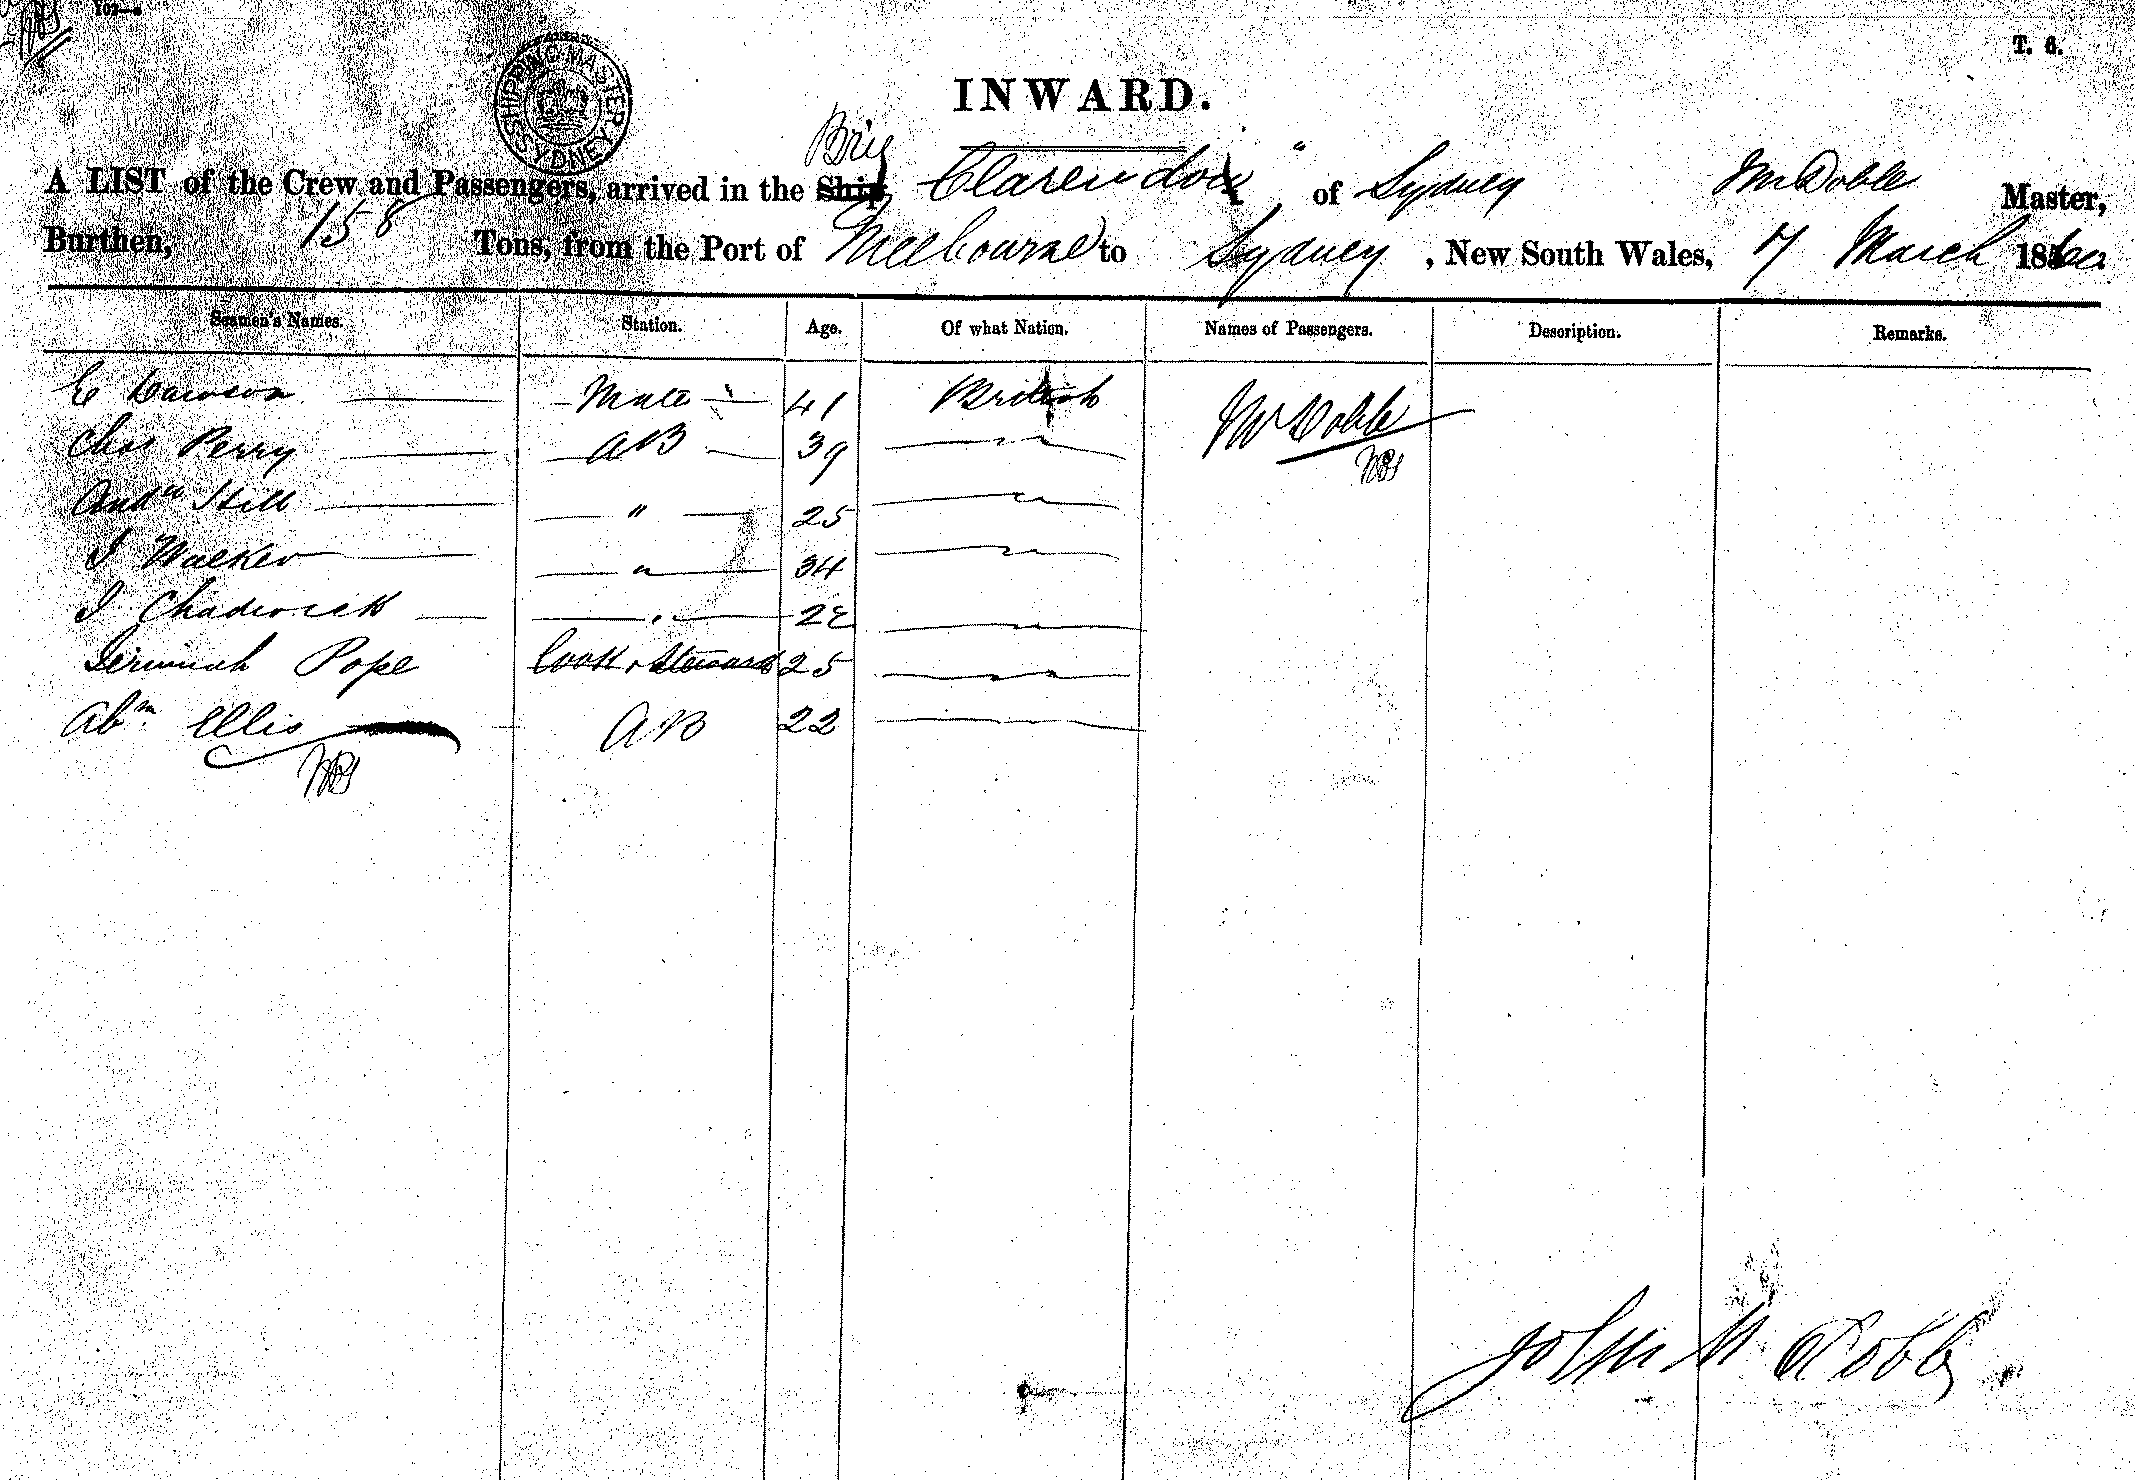 T. 6.
SHIPPING MASTER SYDNEY
INWARD.
Brig
A LIST of the Crew and Passengers, arrived in the Ship, Clarendon of Sydney Master,
Burthen, 158 Tons, from the Port of Melbourne to Sydney, New South Wales, 7 March 18
Seamen's Names. Station. Age. Of what Nation. Names of Passengers. Description. Remarks.
E Dawson Mate 41 British
Chas Perry AB 39
Andw Hill " 25
J Walker " 34
J Chadwick "
Jeremiah Pope Cook & Steward 25
Abm Ellis AB 22
John